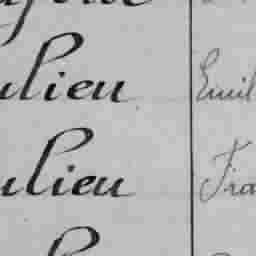 ulieu Emil
ulieu Fra